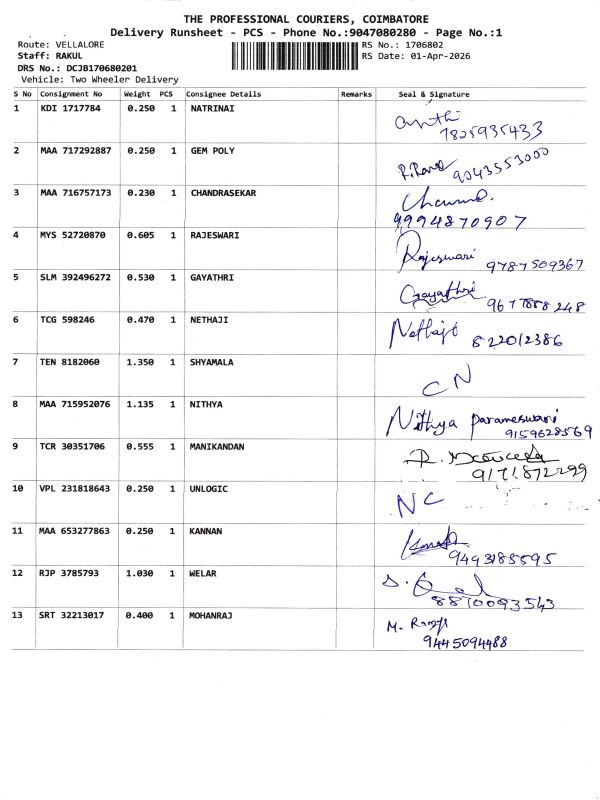 THE PROFESSIONAL COURIERS, COIMBATORE
Delivery Runsheet - PCS - Phone No.:9047080280 - Page No.:1
Route: VELLALORE RS No.: 1706802
Staff: RAKUL RS Date: 01-Apr-2026
DRS No.: DCJB170680201
Vehicle: Two Wheeler Delivery
S No Consignment No Weight PCS Consignee Details Remarks Seal & Signature
1 KDI 1717784 0.250 1 NATRINAI
7825935433
2 MAA 717292887 0.250 1 GEM POLY
9043553000
3 MAA 716757173 0.230 1 CHANDRASEKAR
9994870907
4 MYS 52720870 0.605 1 RAJESWARI Rajeswari 9787509367
5 SLM 392496272 0.530 1 GAYATHRI Gayathri
6 TCG 598246 0.470 1 NETHAJI Nethaji 822012386
7 TEN 8182060 1.350 1 SHYAMALA CN
8 MAA 715952076 1.135 1 NITHYA Nithya Parameswari
9159628569
9 TCR 30351706 0.555 1 MANIKANDAN
9171872299
10 VPL 231818643 0.250 1 UNLOGIC NC
11 MAA 653277863 0.250 1 KANNAN
9493185595
12 RJP 3785793 1.030 1 WELAR
8870093543
13 SRT 32213017 0.400 1 MOHANRAJ M.
9445094488